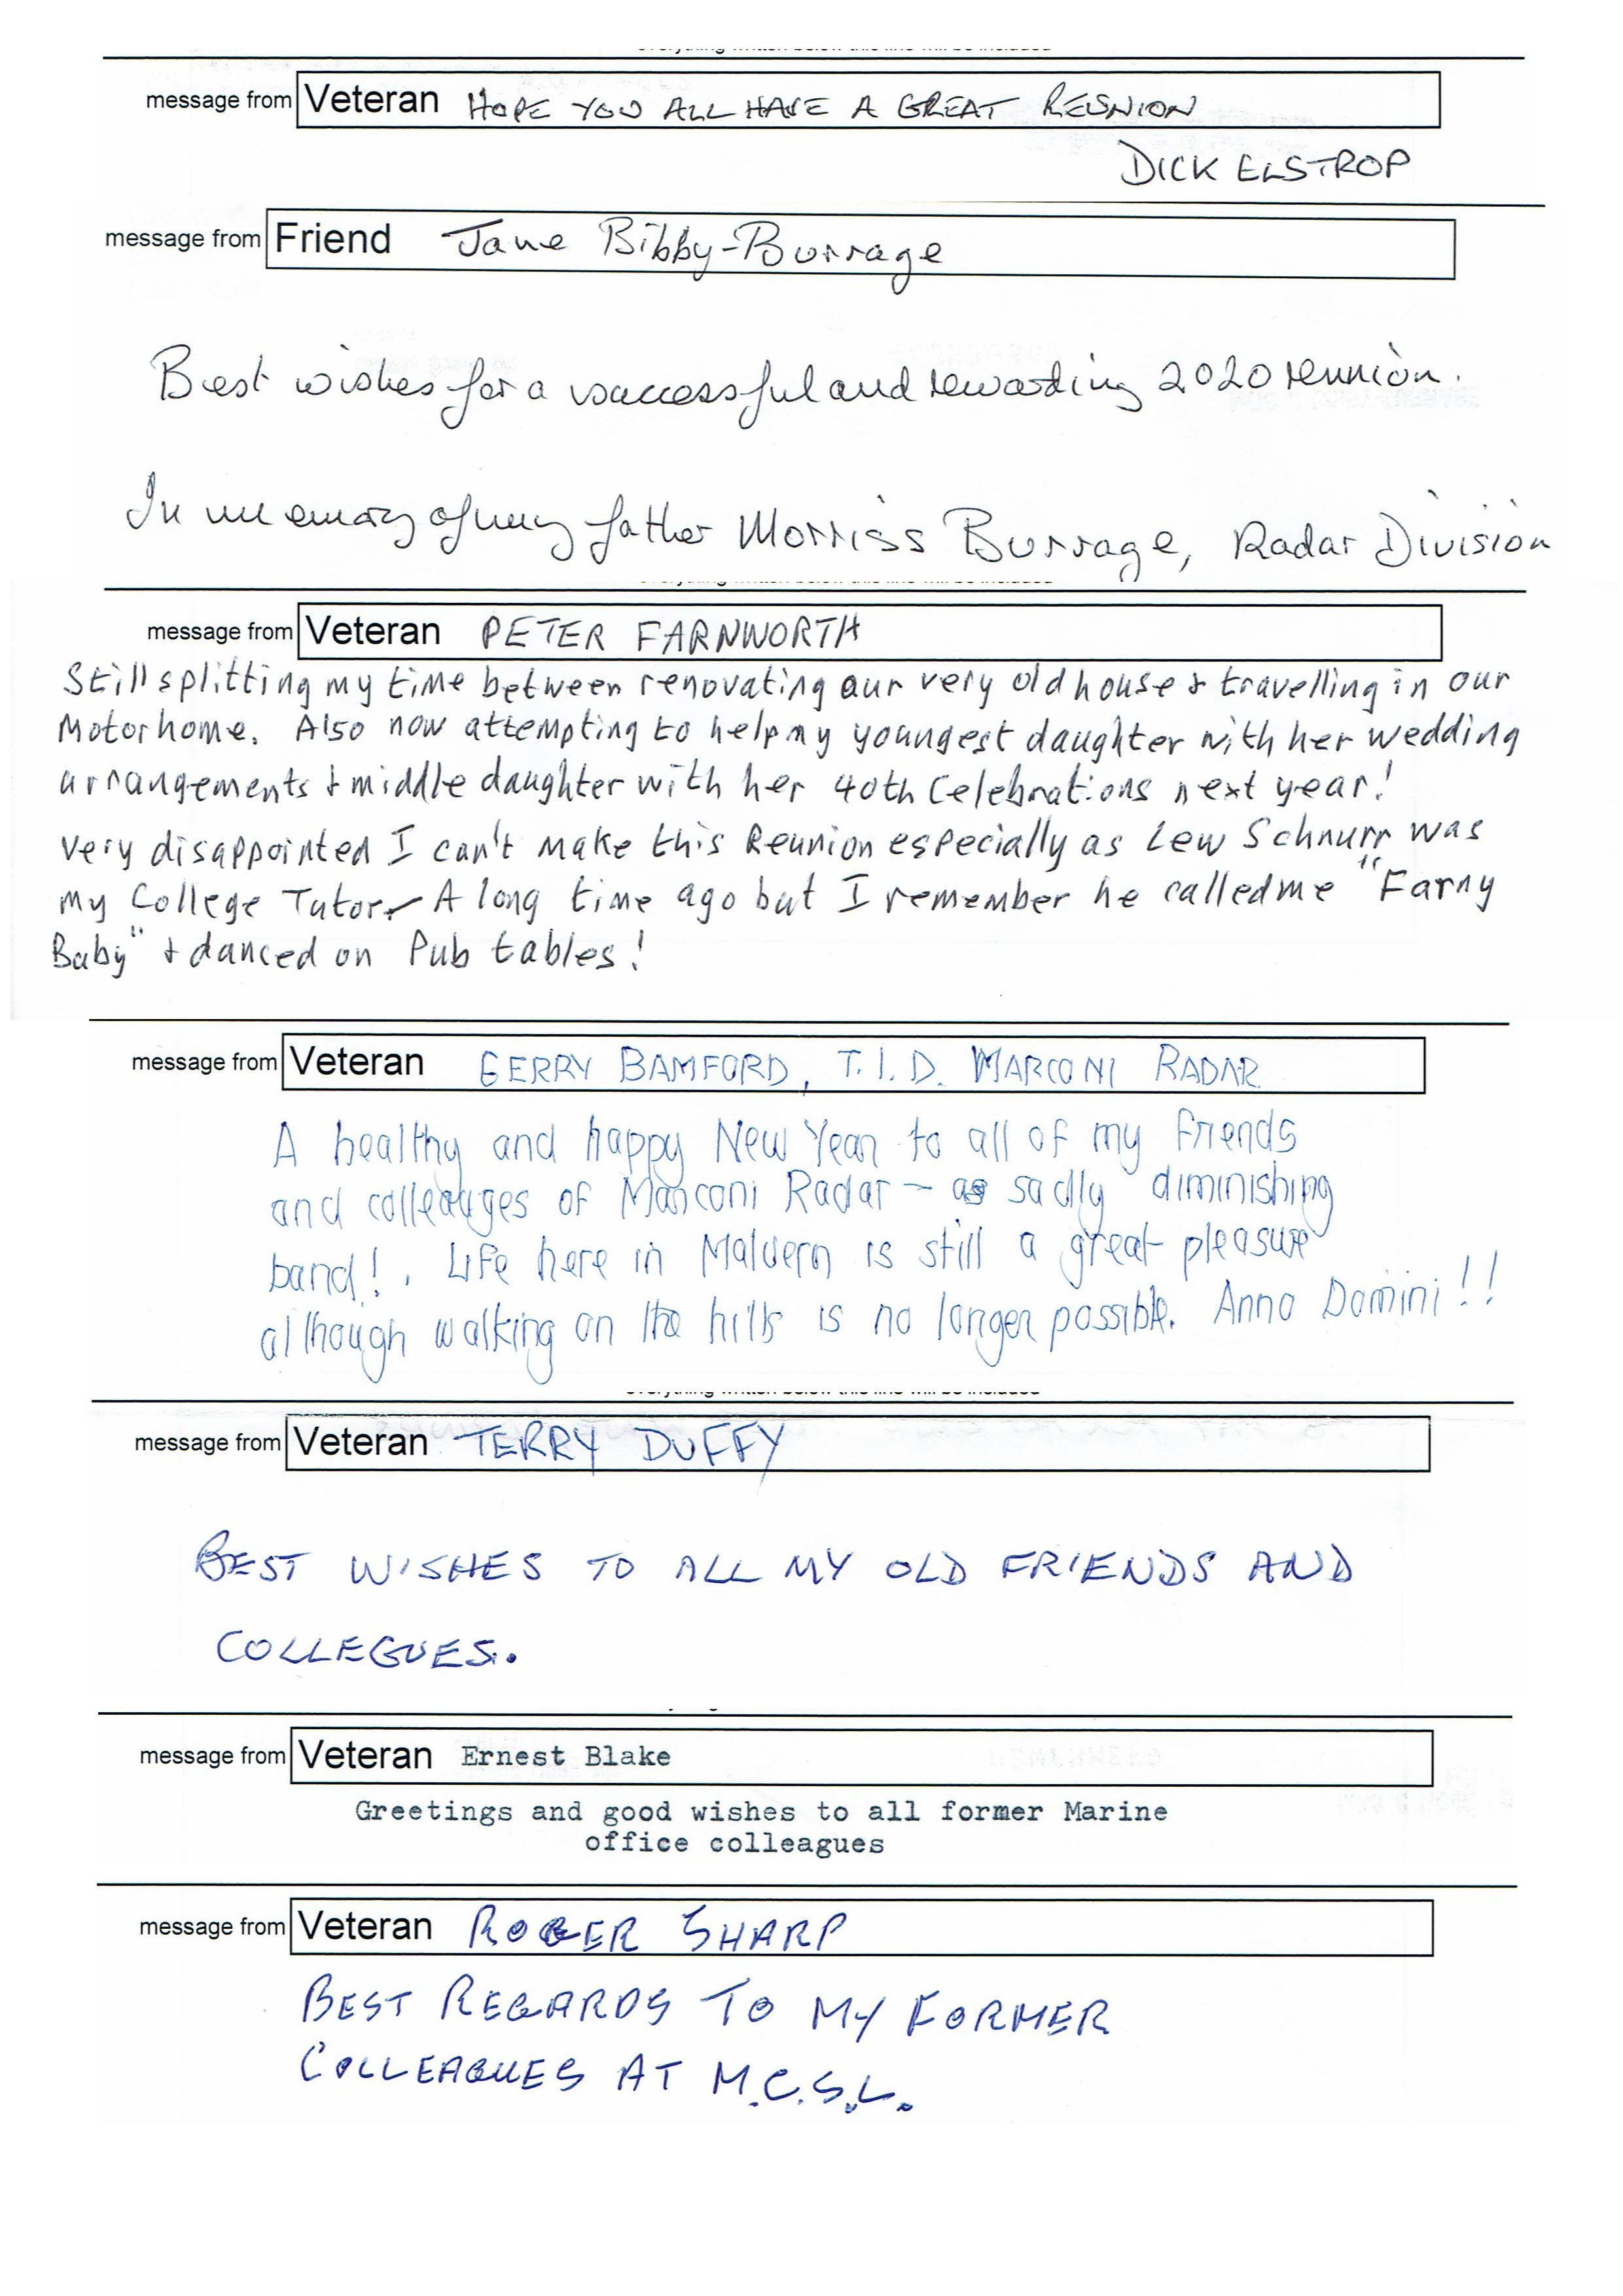 message from Veteran HOPE YOU ALL HAVE A GREAT REUNION
DICK ELSTROP
message from Friend Jane Bibby-Burrage
Best wishes for a successful and rewarding 2020 reunion.
In memory of my father Morriss Burrage, Radar Division
everything written below this line will be included
message from Veteran PETER FARNWORTH
Still splitting my time between renovating our very old house & travelling in our
Motorhome. Also now attempting to help my youngest daughter with her wedding
arrangements & middle daughter with her 40th Celebrations next year!
Very disappointed I can't make this Reunion especially as Lew Schnurr was
my College Tutor - A long time ago but I remember he called me "Farny
Baby" & danced on Pub tables!
message from Veteran GERRY BAMFORD, T.I.D. MARCONI RADAR
A healthy and happy New Year to all of my friends
and colleauges of Marconi Radar - as sadly diminishing
band!. Life here in Malvern is still a great pleasure
although walking on the hills is no longer possible. Anno Domini!!
everything written below this line will be included
message from Veteran TERRY DUFFY
BEST WISHES TO ALL MY OLD FRIENDS AND
COLLEGUES.
message from Veteran Ernest Blake
Greetings and good wishes to all former Marine
office colleagues
message from Veteran ROGER SHARP
BEST REGARDS TO MY FORMER
COLLEAGUES AT M.C.S.L.